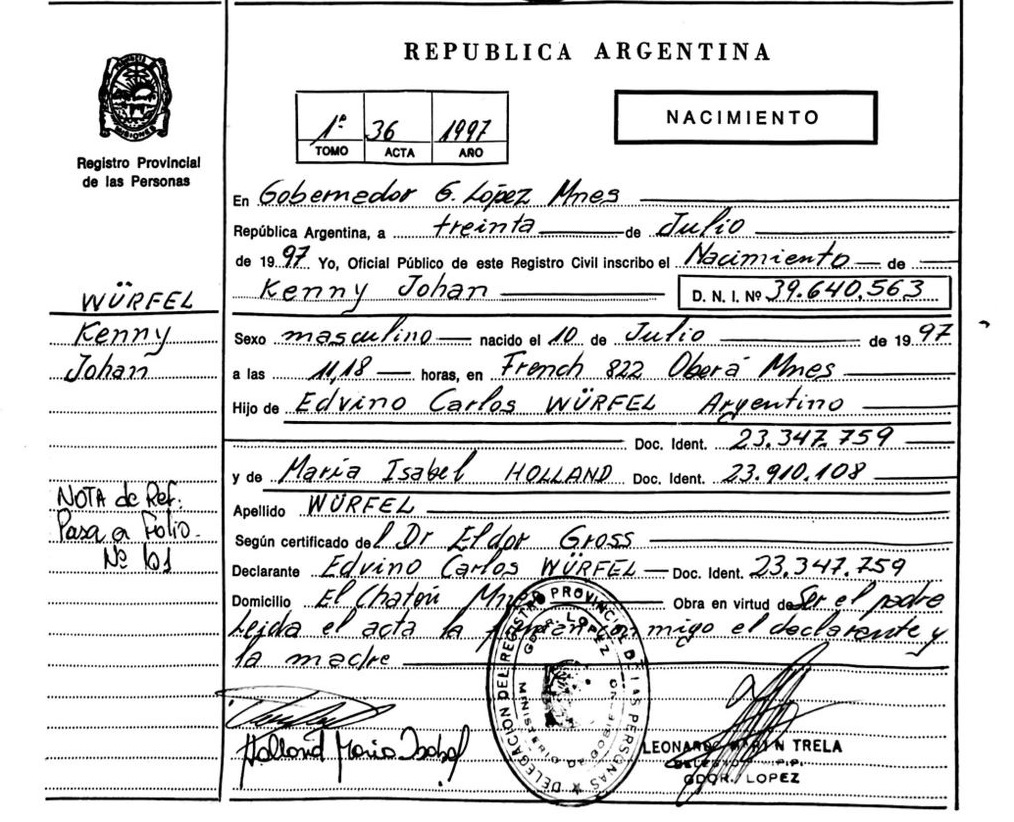 REPUBLICA ARGENTINA
PROVINCIA DE MISIONES
Registro Provincial
de las Personas
1ª 36 1997
TOMO ACTA AÑO
NACIMIENTO
En Gobernador G. López Mnes
República Argentina, a treinta de Julio
de 1997 Yo, Oficial Público de este Registro Civil inscribo el Nacimiento de
Kenny Johan D. N. I. Nº 39.640.563
WÜRFEL
Kenny
Johan
Sexo masculino nacido el 10 de Julio de 1997
a las 11,18 horas, en French 822 Oberá Mnes
Hijo de Edvino Carlos WÜRFEL Argentino
Doc. Ident. 23.347.759
y de María Isabel HOLLAND Doc. Ident. 23.910.108
NOTA de Ref.
Pasa a Folio.
Nº 101
Apellido WÜRFEL
Según certificado del Dr Eldor Gross
Declarante Edvino Carlos WÜRFEL Doc. Ident. 23.347.759
Domicilio El Chatón Mnes Obra en virtud de Ser el padre
Leida el acta la firman conmigo el declarante y
la madre
DELEGACION DEL REGISTRO PROVINCIAL DE LAS PERSONAS
GDOR. LOPEZ
Holland Maria Isabel
LEONARDO TRELA
GDOR. LOPEZ